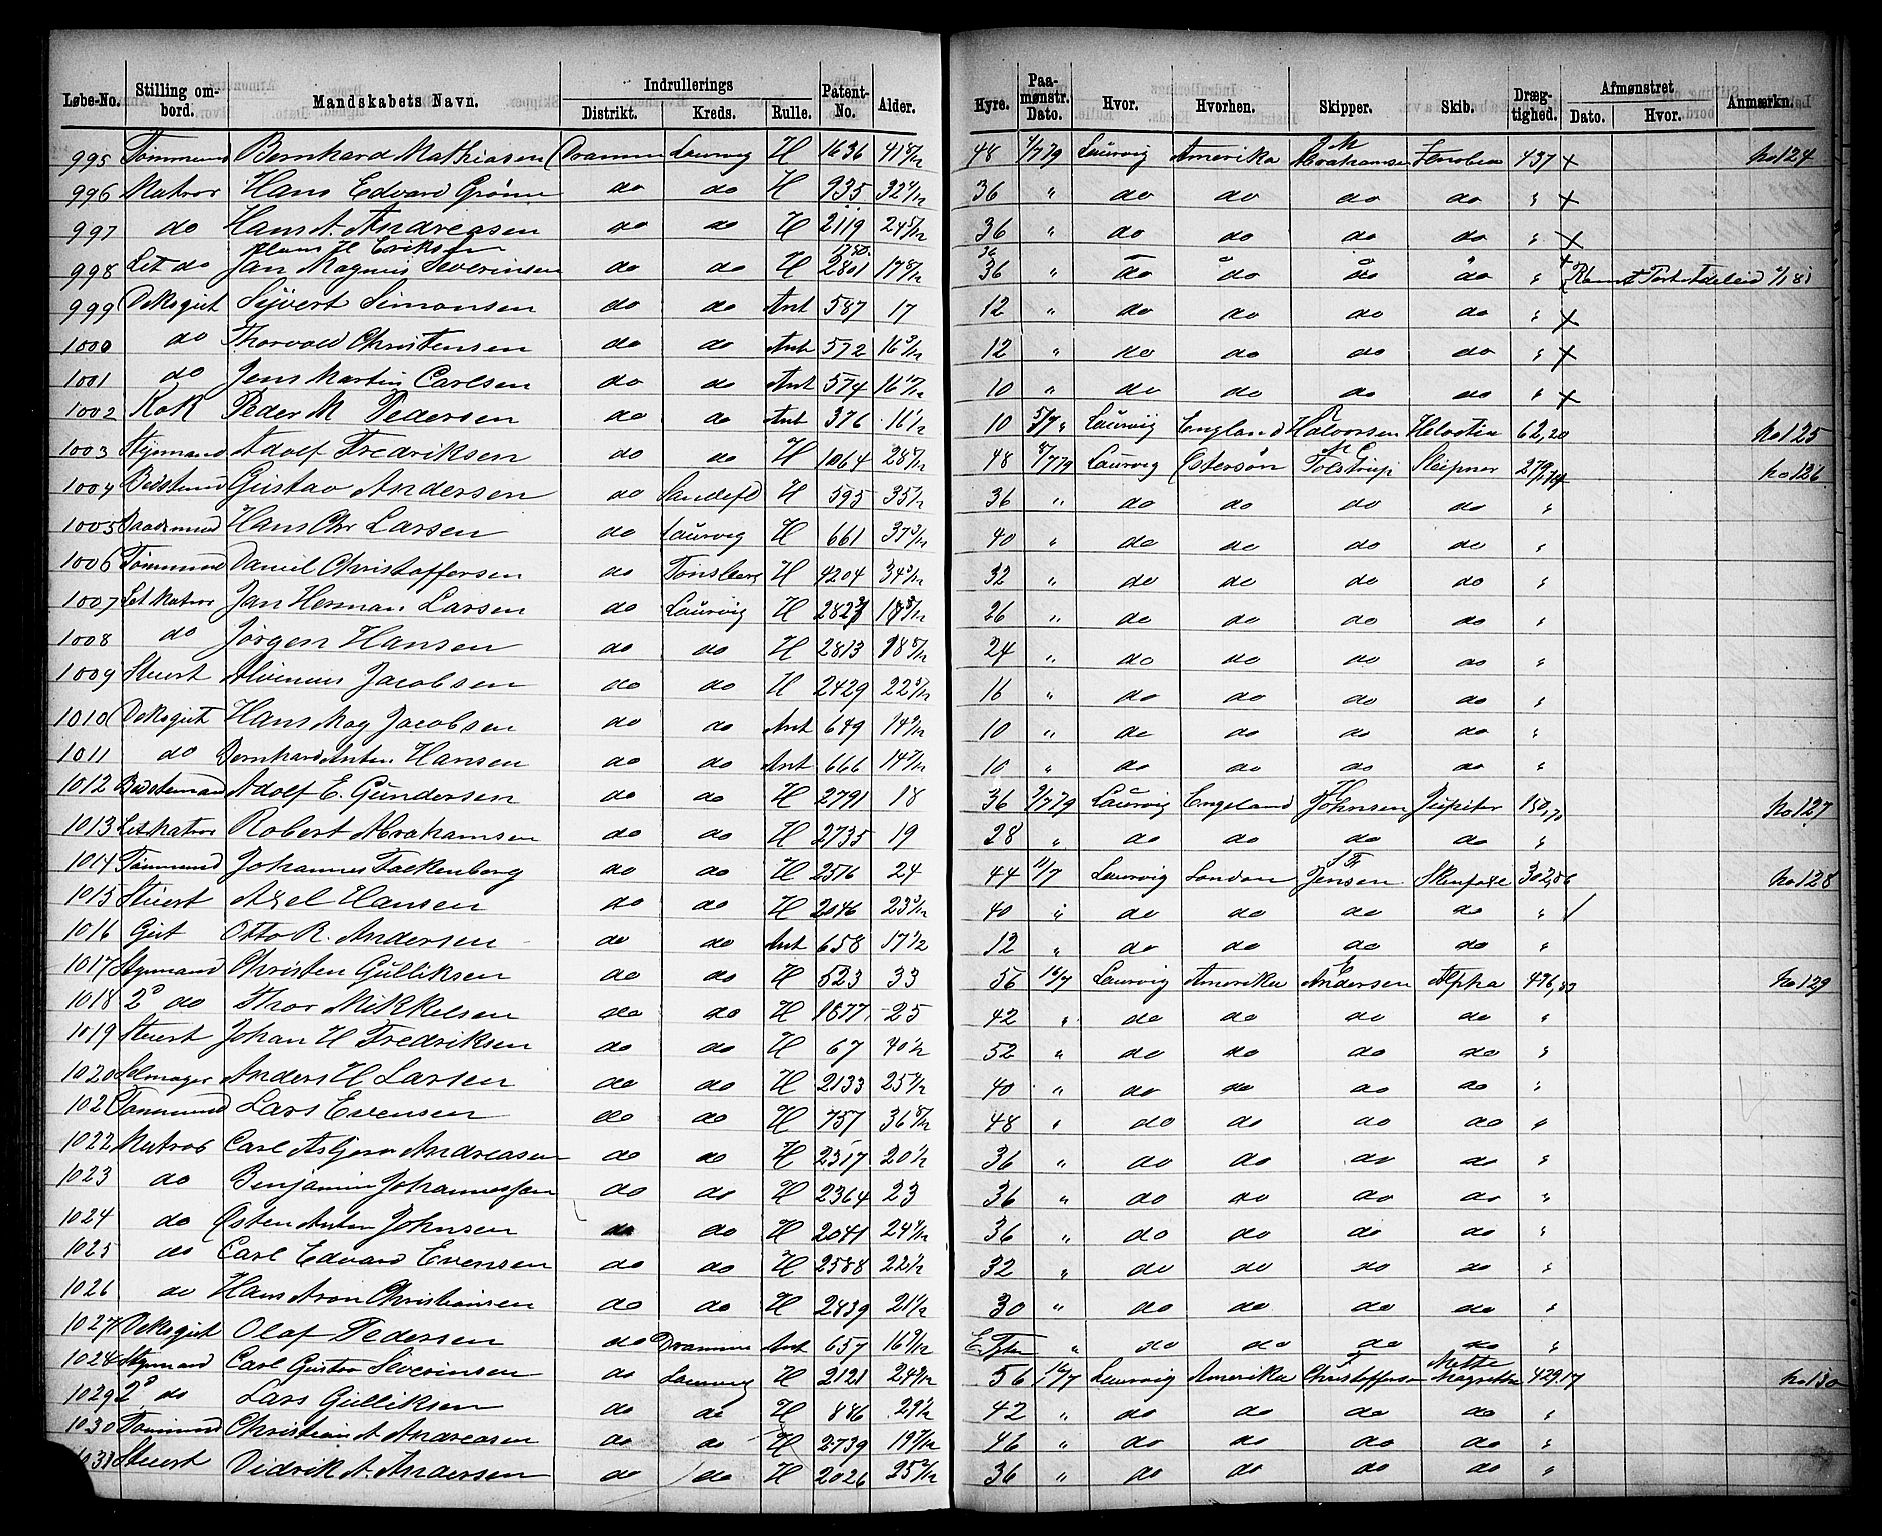 Løbe-No. Stilling ombord. Mandskabets Navn. Indrullerings Distrikt. Kreds. Rulle. Patent-No. Alder. Hyre. Paamønstr. Dato. Hvor. Hvorhen. Skipper. Skib. Drægtighed. Afmønstret Dato. Hvor. Anmærkn.
995 Tømmmd Bernhard Mathiasen Drammn Laurvig H 1636 41 8/12 48 1/7 79 Laurvig Amerika Abrahamsen Zenobia 437 x No 124
996 Matros Hans Edvard do do H 935 36 " do do do do " x
997 do Hans A Andreasen do do H 2119 24 36 " do do do do " x
Hans H Eriksen
998 Let do Jan Magnus Severinsen do do H 2801 17 8/12 36 " do do do do "
999 Deksgut Sijvert Simonsen do do Ant 587 17 12 " do do do do " x
1000 do Thorvald Christensen do do Ant 572 16 12 " do do do do " x
1001 do Jens Martin Carlsen do do Ant 574 16 10 " do do do do " x
1002 Kok Peder M Pedersen do do Ant 376 16 1/2 10 5/7 " Laurvig England Halvorsen 62,20 No 125
1003 Styrmand Adolf Fredriksen do do H 1064 28 48 8/7 79 Laurvig Østersøn Tolstrup Sleipner 279,74 No 126
1004 Gustav Andersen do Sandefd H 595 35 1/2 36 " do do do do "
1005 Hans Chr Larsen do Laurvig H 661 37 40 " do do do do "
1006 Tømmmd Daniel Christoffersen do Tønsberg H 4204 34 32 " do do do do "
1007 Let Matros Jan Herman Larsen do Laurvig H 26 " do do do do "
1008 do Jørgen Hansen do do H 2813 18 24 " do do do do "
1009 Stuert Jacobsen do do H 2429 22 16 " do do do do "
1010 Deksgut Hans Jacobsen do do Ant 649 14 10 " do do do do "
1011 do Bernhard Anton Hansen do do Ant 666 14 10 " do do do do "
1012 Adolf E. Gundersen do do H 2791 18 36 9/7 79 Laurvig Engeland Johnsen Jupiter 150,70 No 127
1013 Let Matros Robert Abrahamsen do do H 2735 19 28 " do do do do "
1014 Tømmmd Johannes Falkenberg do do H 2516 24 44 11/7 Laurvig London Jensen 302,86 No 128
1015 Stuert Axel Hansen do do H 2046 23 40 " do do do do "
1016 Gut Otto R. Andersen do do Ant 658 17 1/2 12 " do do do do "
1017 Styrmand Christen Gulliksen do do H 523 33 56 16/7 Laurvig Amerika Andersen Alpha No 129
1018 2d do Thor Mikkelsen do do H 1877 25 42 " do do do do "
1019 Stuert Johan H Fredriksen do do H 67 40 1/2 52 " do do do do "
1020 Selmager Anders H Larsen do do H 2133 25 40 " do do do do "
102 Tømmmd Lars Evensen do do H 757 36 8/12 48 " do do do do "
1022 Matros Carl Asbjørn Andreasen do do H 2317 20 1/2 36 " do do do do "
1023 do Benjamin Johannessen do do H 2364 23 36 " do do do do "
1024 do Østen Anton Johnsen do do H 2041 24 36 " do do do do "
1025 do Carl Edvard Evensen do do H 2588 22 1/2 32 " do do do do "
1026 do Hans Aron Christiansen do do H 2839 21 30 " do do do do "
1027 Deksgut Olaf Pedersen do Drammn Ant 657 16 " do do do do "
1028 Styrmand Carl Gustav Severinsen do Laurvig H 2121 24 56 16/7 Laurvig Amerika Christoffersen Mette Magrethe 429,17 No 130
1029 2d do Lars Gulliksen do do H 886 29 1/2 42 " do do do do "
1030 Tømmmd Christian A Andreasen do do H 2739 19 46 " do do do do "
1031 Stuert Didrik A. Andersen do do H 2026 25 36 " do do do do "